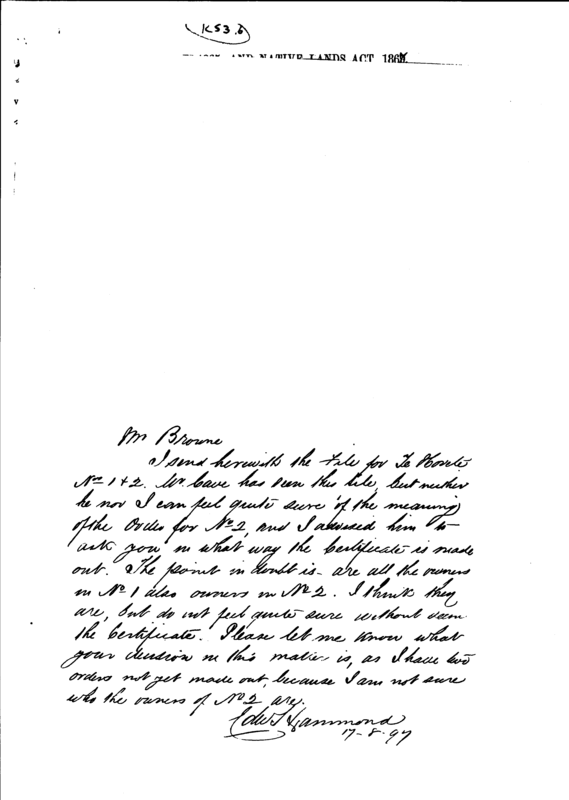 K53.b
AND NATIVE LANDS ACT 186
Mr Browne
I send herewith the File for Te Horete
No 1 & 2. Mr Cave has seen this file, but neither
he nor I can feel quite sure of the meaning
of the Order for No 2, and I advised him to
ask you in what way the Certificate is made
out. The point in doubt is - are all the owners
in No 1 also owners in No 2. I think they
are, but do not feel quite sure without seein
the Certificate. Please let me know what
your decision in this matter is, as I have two
orders not yet made out, because I am not sure
who the owners of No 2 are.
Hammond
17-8-97